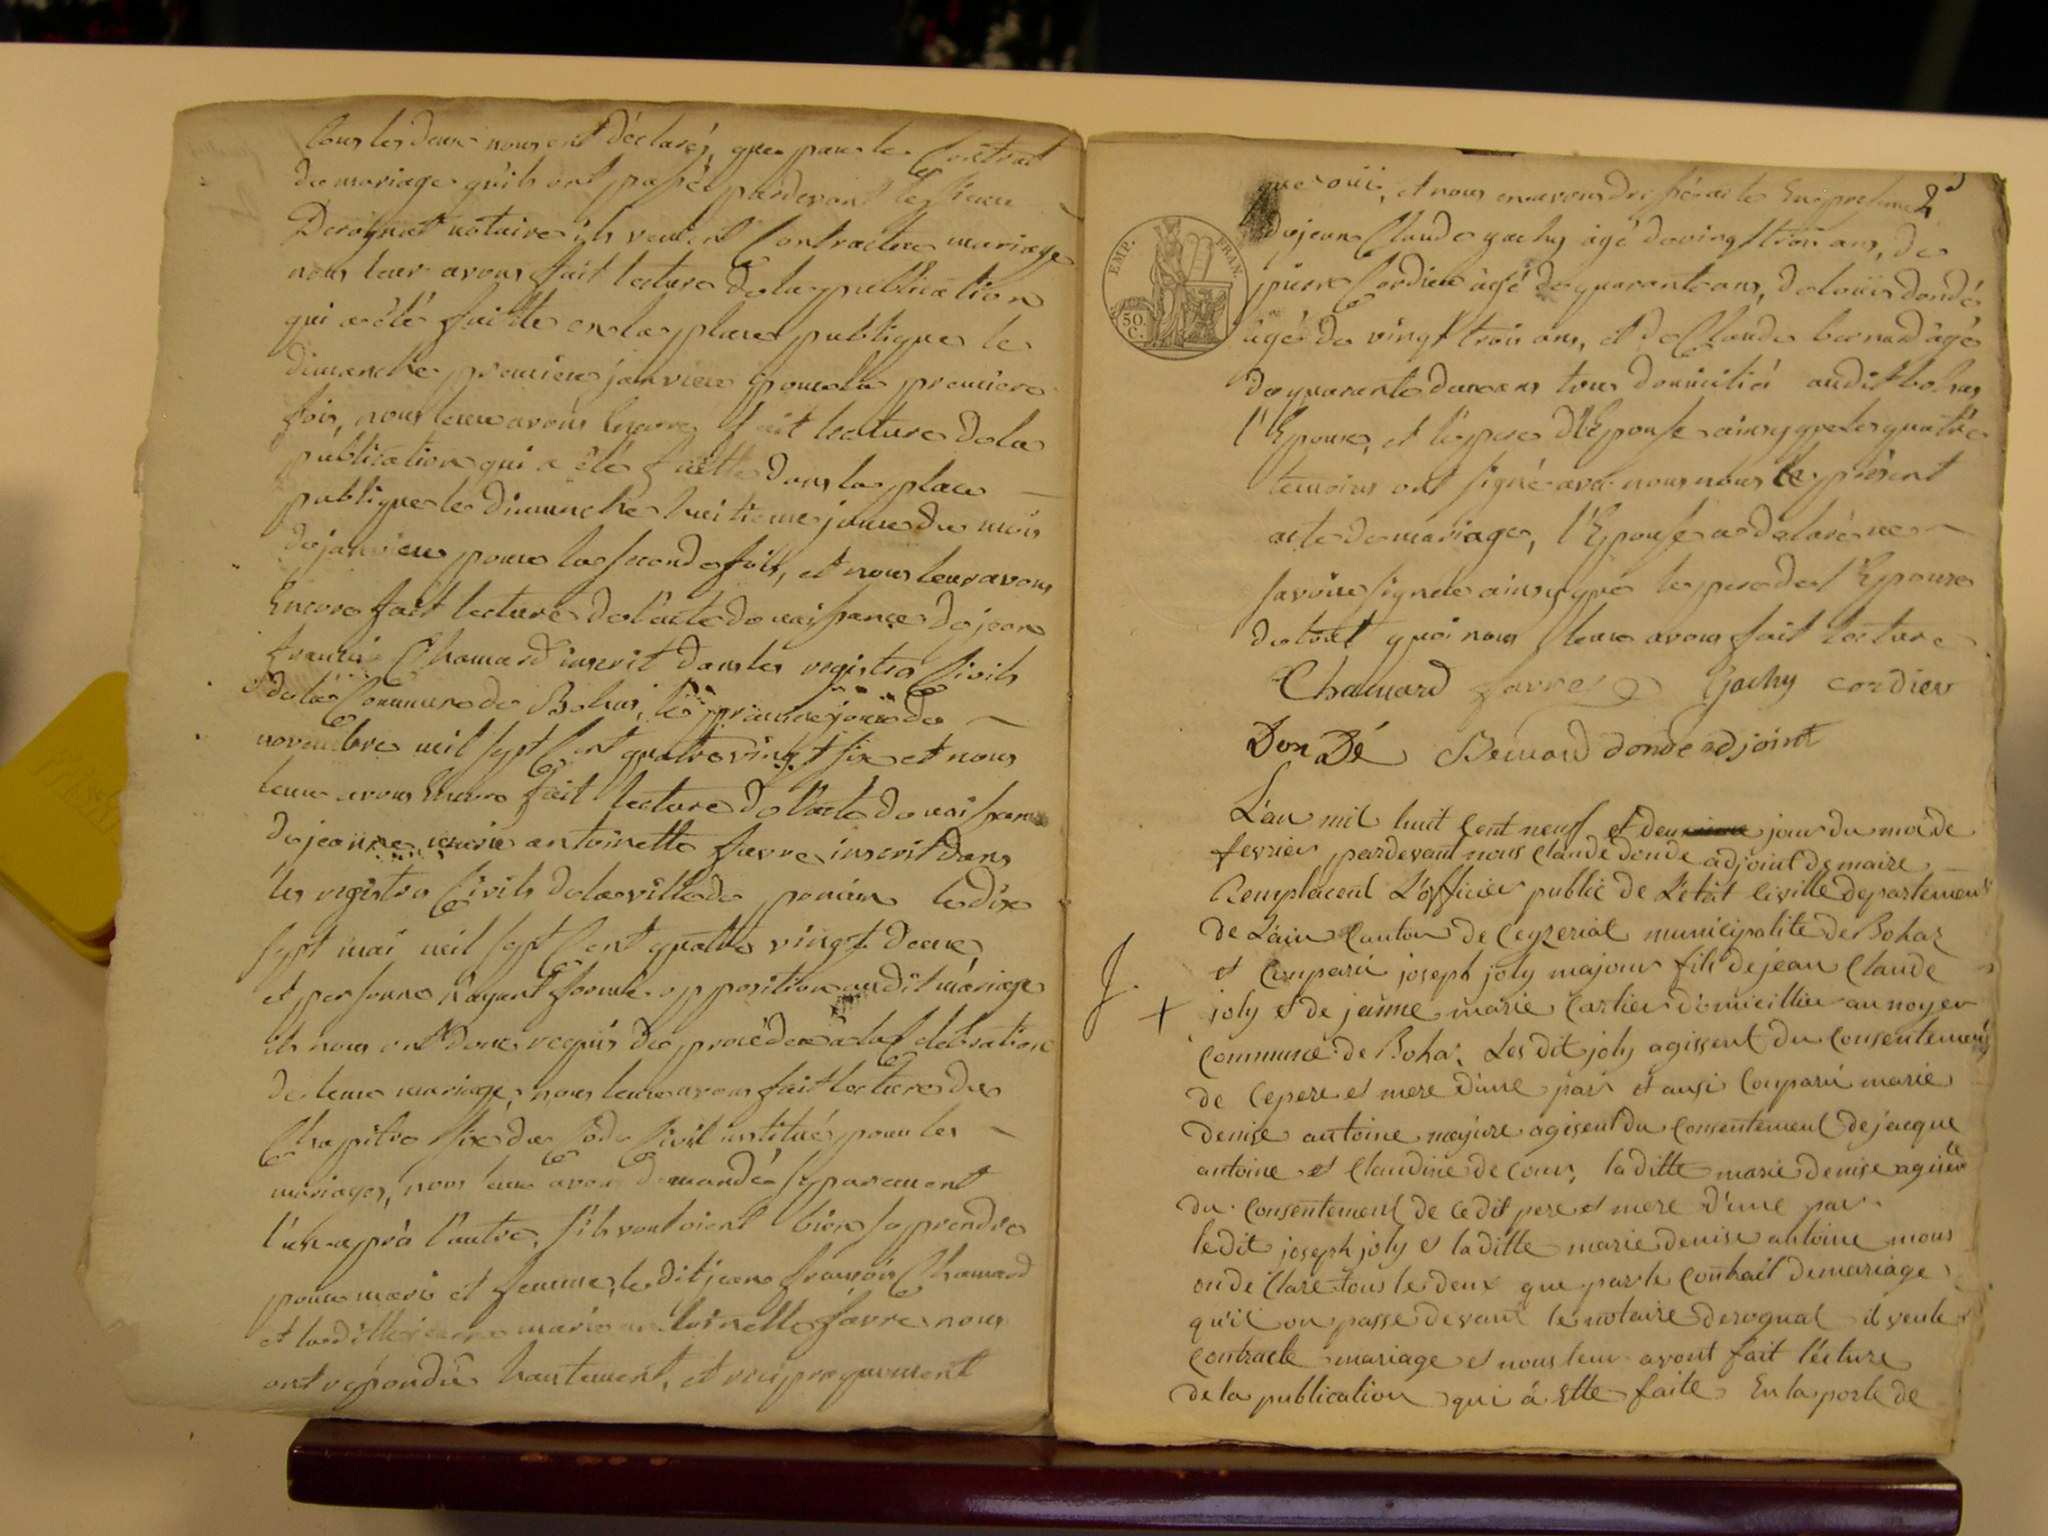 tous les deux nous ont déclarés, que par le Contrat
de mariage qu'ils ont passé pardevant le sieur
Derognat notaire ils veulent Contracter mariage
nous leur avons fait lecture de la publication
qui a été faitte en la place publique le
dimanche premier janvier pour la premiere
fois, nous leur avons Encore fait lecture de la
publication qui a été faitte dans la place
publique le dimanche huitieme jour du mois
de janvier pour la seconde fois, et nous leur avons
Encore fait lecture de l'acte de naissance de jean
francois Chamard inscrit dans les registre Civils
de la Commune de Bohas, le premier jour de
novembre mil sept Cent quatre vingt six et nous
leur avons Encore fait lecture de l'acte de naissance
de jeanne marie antoinette favre inscrit dans
les registre Civils de la ville de le dix
sept mai mil sept Cent quatre vingt deux,
et personne n'ayant formé opposition audit mariage
ils nous ont donc requis de procéder a la Celebration
de leur mariage, nous leur avons fait lecture du
Chapitre six du Code Civil institué pour les
mariages, nous leur avons demandé separement
l'un aprà l'autre, s'ils vouloient bien se prendre
pour mari et femme, ledit jean francois Chamard
et laditte jeanne marie antoinette favre nous
ont répondu hautement, et reciproquement
que oui, et nous en avons dressé acte En presence 2
EMP. FRAN.
50 C.
de jean Claude gachy agé de vingt trois ans, de
pierre Cordier agé de quarante ans, de louis dondé
agé de vingt trois ans, et de Claude bernard agé
de quarante deux ans tous domicilié audit bohas
l'Epoux, et le pere d'Epouse ainsy que les quatre
temoins ont signé avec nous nous le présent
acte de mariage, l'Epouse a déclaré ne
savoir signer ainsy que le pere de l'Epoux
de tout quoi nous leur avons fait lecture
Chamard favre Gachy cordier
Don Dé Bernard donde adjoint
L'an mil huit Cent neuf et deuxieme jour du moi de
fevrier pardevant nous claude donde adjoint de maire
Remplacent L'officier public de L'etat civille departement
de L'ain Canton de Ceyzeriat municipalité de Bohaz
J. et Comparu joseph joly majour fils de jean Claude
+ joly et de jeanne marie Cartier domicillier au noyer
Commune de Boha. Les dit joly agissent du Consentement
de Ce pere et mere d'une par et ausi Comparu marie
denise antoine majure agisent du Consentement de jacque
antoine et Claudine de Cour, la ditte marie denise agisen
du Consentement de Ce dit pere et mere d'une par
le dit joseph joly et la ditte marie denise antoine nous
on de Clare tous le deux que par le Contrait de mariage
qu'il on passe devant le notaire derognat il veule
Contracte mariage et nous leur avont fait lecture
de la publication qui á ette faite En la porte de